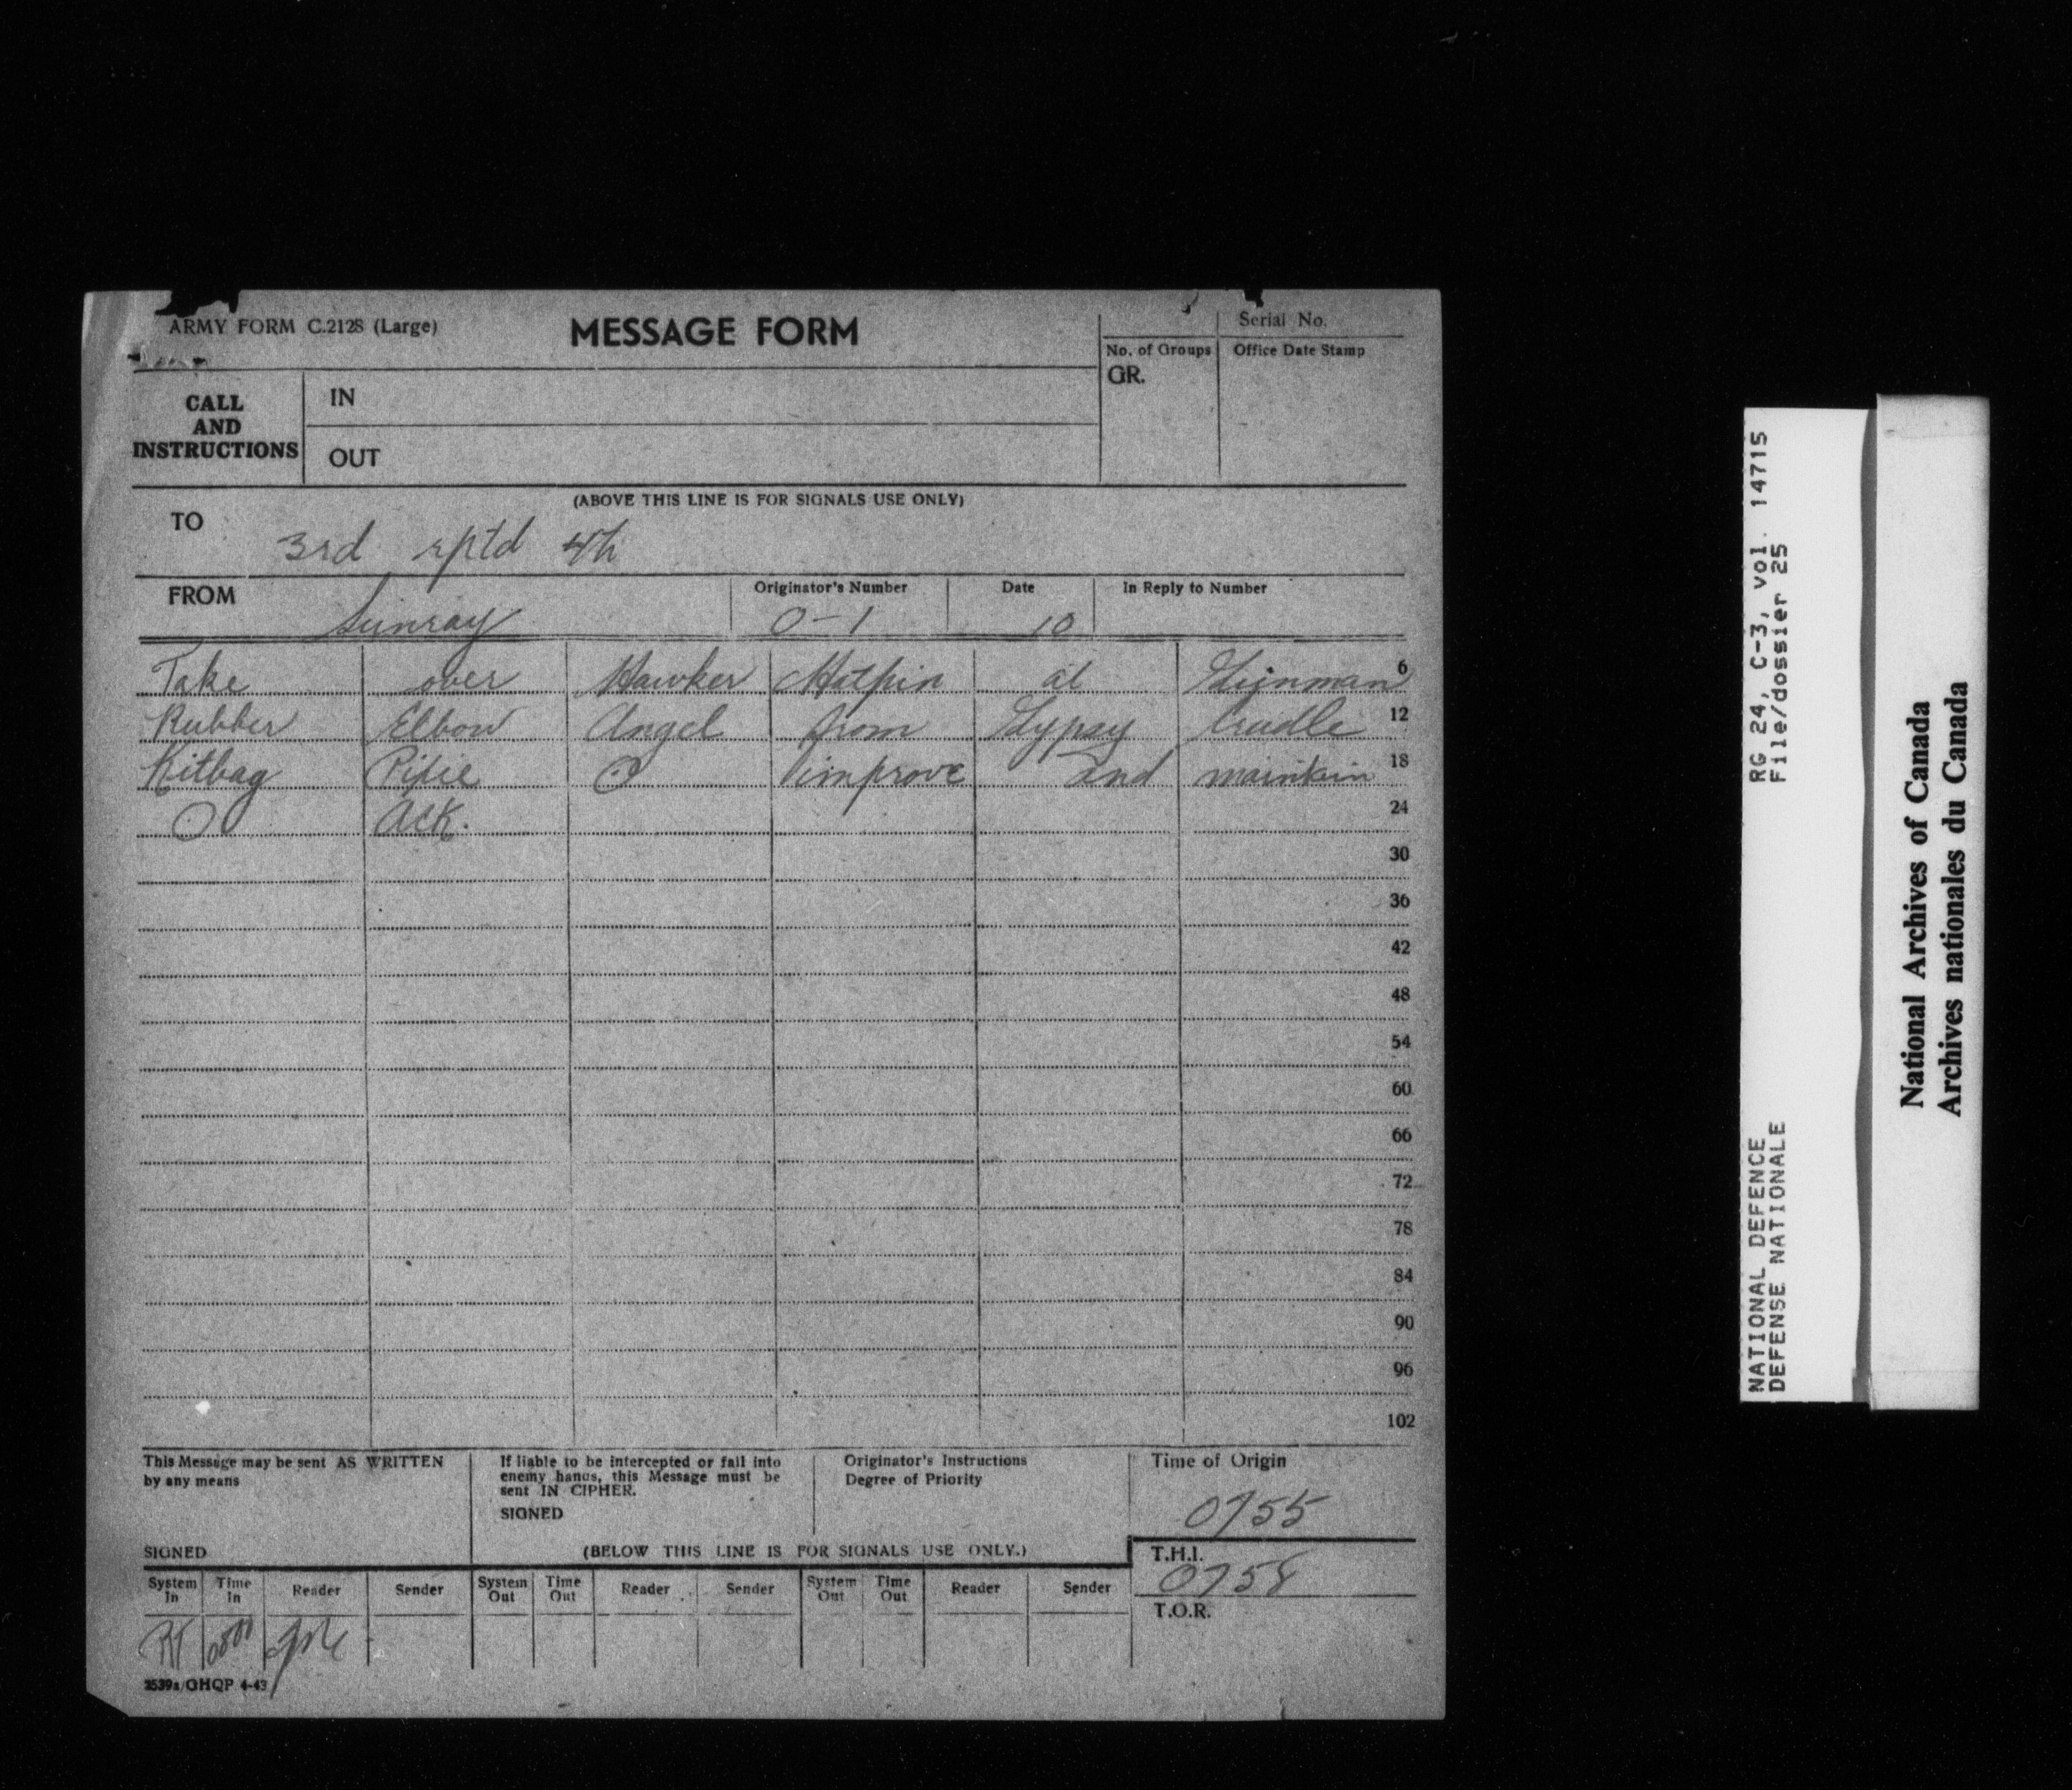 ARMY FORM C.2128 (Large)
MESSAGE FORM
Serial No.
No. of Groups
GR.
Office Date Stamp
CALL
AND
INSTRUCTIONS
IN
OUT
(ABOVE THIS LINE IS FOR SIGNALS USE ONLY)
TO
3rd rptd 4th
FROM
Sunray
Originator's Number
0-1
Date
10
In Reply to Number
Take over Hawker Hatpin at 6
Rubber Elbow Angel from Gypsy Cradle 12
Kitbag O improve and maintain 18
O Ack. 24
30
36
42
48
54
60
66
72
78
84
90
96
102
This Message may be sent AS WRITTEN
by any means
SIGNED
If liable to be intercepted or fall into
enemy hands, this Message must be
sent IN CIPHER.
SIGNED
Originator's Instructions
Degree of Priority
Time of Origin
0755
(BELOW THIS LINE IS FOR SIGNALS USE ONLY.)
T.H.I.
0758
T.O.R.
System In Time In Reader Sender System Out Time Out Reader Sender System Out Time Out Reader Sender
RT
2539a/GHQP 4-43
RG 24, C-3, vol. 14715
File/dossier 25
NATIONAL DEFENCE
DEFENSE NATIONALE
National Archives of Canada
Archives nationales du Canada